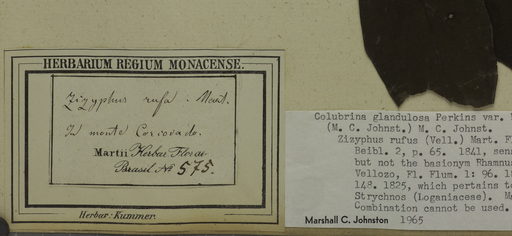 HERBARIUM REGIUM MONACENSE.
Zizyphus rufa. Mart.
In monte Corcovado.
Martii Herbar. Florae
Brasil. No 575.
Herbar: Kummer.
Colubrina glandulosa Perkins var.
(M. C. Johnst.) M. C. Johnst.
Zizyphus rufus (Vell.) Mart. F
Beibl. 2, p. 65. 1841, sens
but not the basionym Rhamnus
Vellozo, Fl. Flum. 1: 96. 18
148. 1825, which pertains to
Strychnos (Loganiaceae). M
Combination cannot be used.
Marshall C. Johnston 1965